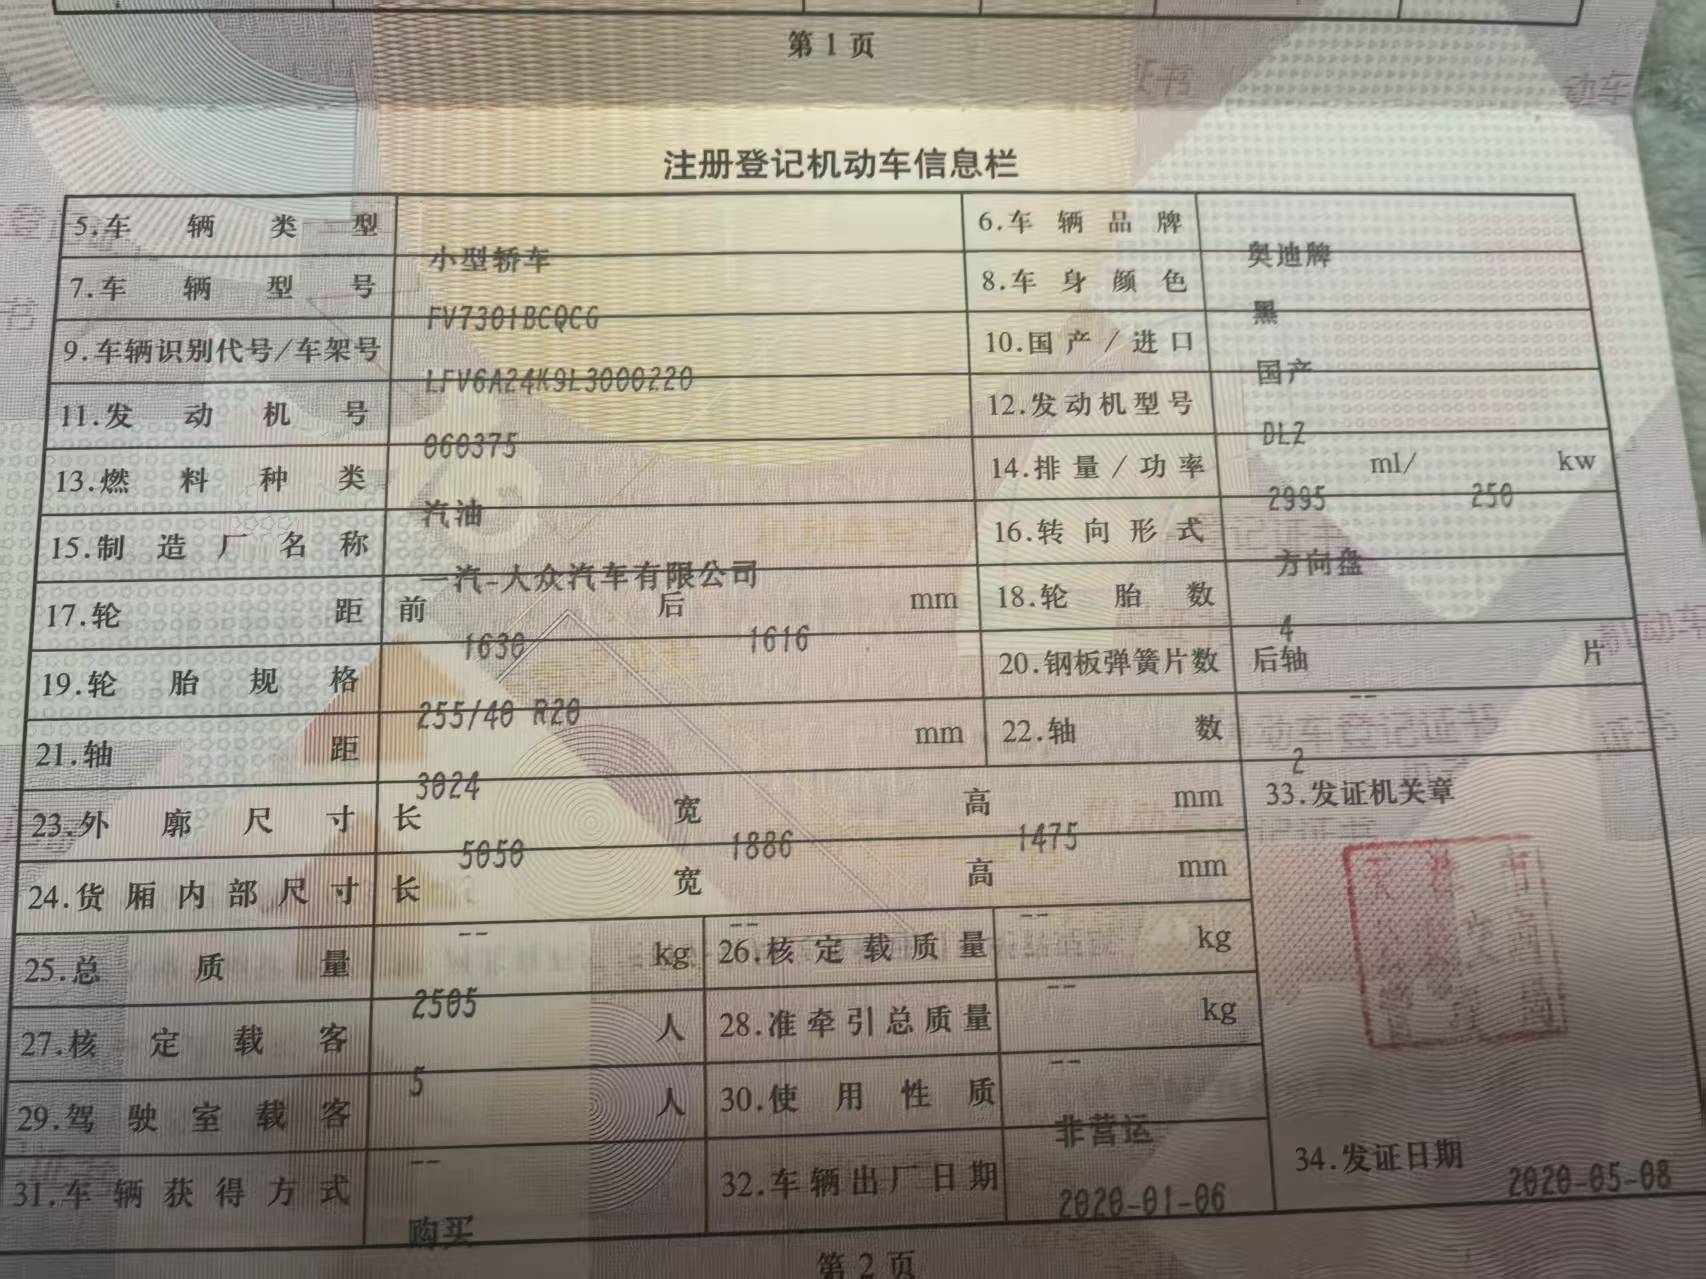 第 1 页
注册登记机动车信息栏
5.车辆类型 小型轿车 6.车辆品牌 奥迪牌
7.车辆型号 FV7301BCQCG 8.车身颜色 黑
9.车辆识别代号/车架号 LFV6A24K9L3000220 10.国产/进口 国产
11.发动机号 060375 12.发动机型号 DLZ
13.燃料种类 汽油 14.排量/功率 2995 ml/ 250 kw
15.制造厂名称 一汽-大众汽车有限公司 16.转向形式 方向盘
17.轮距 前 1630 后 1616 mm 18.轮胎数 4
19.轮胎规格 255/40 R20 20.钢板弹簧片数 后轴 -- 片
21.轴距 3024 mm 22.轴数 2
23.外廓尺寸 长 5050 宽 1886 高 1475 mm 33.发证机关章
24.货厢内部尺寸 长 -- 宽 -- 高 -- mm
25.总质量 2505 kg 26.核定载质量 -- kg
27.核定载客 5 人 28.准牵引总质量 -- kg
29.驾驶室载客 -- 人 30.使用性质 非营运
31.车辆获得方式 购买 32.车辆出厂日期 2020-01-06 34.发证日期 2020-05-08
第 2 页